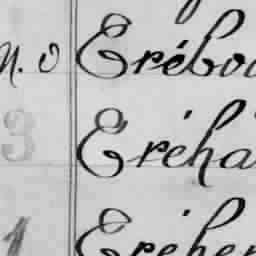 N. O Erébou
3 Eréha
1 Erehen